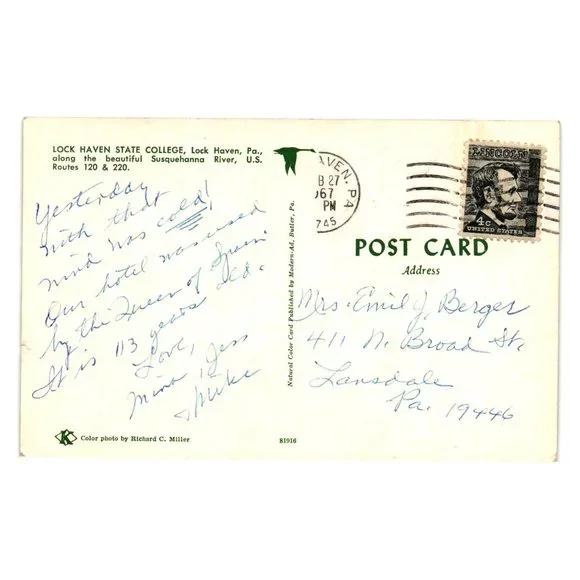 LOCK HAVEN STATE COLLEGE, Lock Haven, Pa.,
along the beautiful Susquehanna River, U.S.
Routes 120 & 220.
Yesterday
with that
wind was cold!
Our hotel was used
by the Queen of Spain.
It is 113 years old.
Love,
Jess
& Mike
K Color photo by Richard C. Miller
81916
Natural Color Card Published by Modern-Ad, Butler, Pa.
AVEN, PA
B 27
1967
PM
745
LINCOLN
4c
UNITED STATES
POST CARD
Address
Mrs. Emil J. Berger
411 N. Broad St.
Lansdale
Pa. 19446